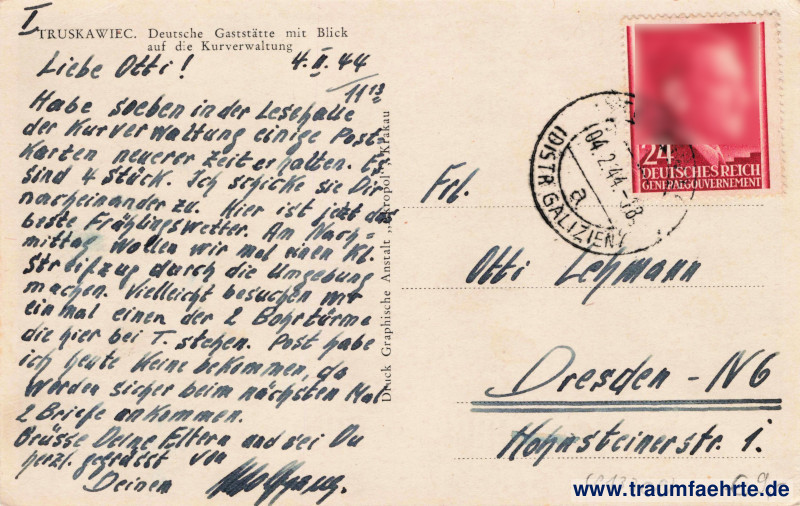 I
TRUSKAWIEC. Deutsche Gaststätte mit Blick
auf die Kurverwaltung
Liebe Otti! 4. II. 44
11 13
Habe soeben in der Lesehalle
der Kurverwaltung einige Post-
karten neuerer Zeit erhalten. Es
sind 4 Stück. Ich schicke sie Dir
nacheinander zu. Hier ist jetzt das
beste Frühlingswetter. Am Nach-
mittag wollen wir mal einen Kl.
Streifzug durch die Umgebung
machen. Vielleicht besuchen wir
einmal einen der 2 Bohrtürme
die hier bei T. stehen. Post habe
ich heute keine bekommen, da
werden sicher beim nächsten Mal
2 Briefe ankommen.
Grüsse Deine Eltern und sei Du
herzl. gegrüsst von
Deinem Wolfgang.
Druck Graphische Anstalt „Akropol", Krakau
24
DEUTSCHES REICH
GENERALGOUVERNEMENT
04.2.44.-18
a
(DISTR GALIZIEN)
Frl.
Otti Lehmann
Dresden - N6
Hohnsteinerstr. 1.
www.traumfaehrte.de